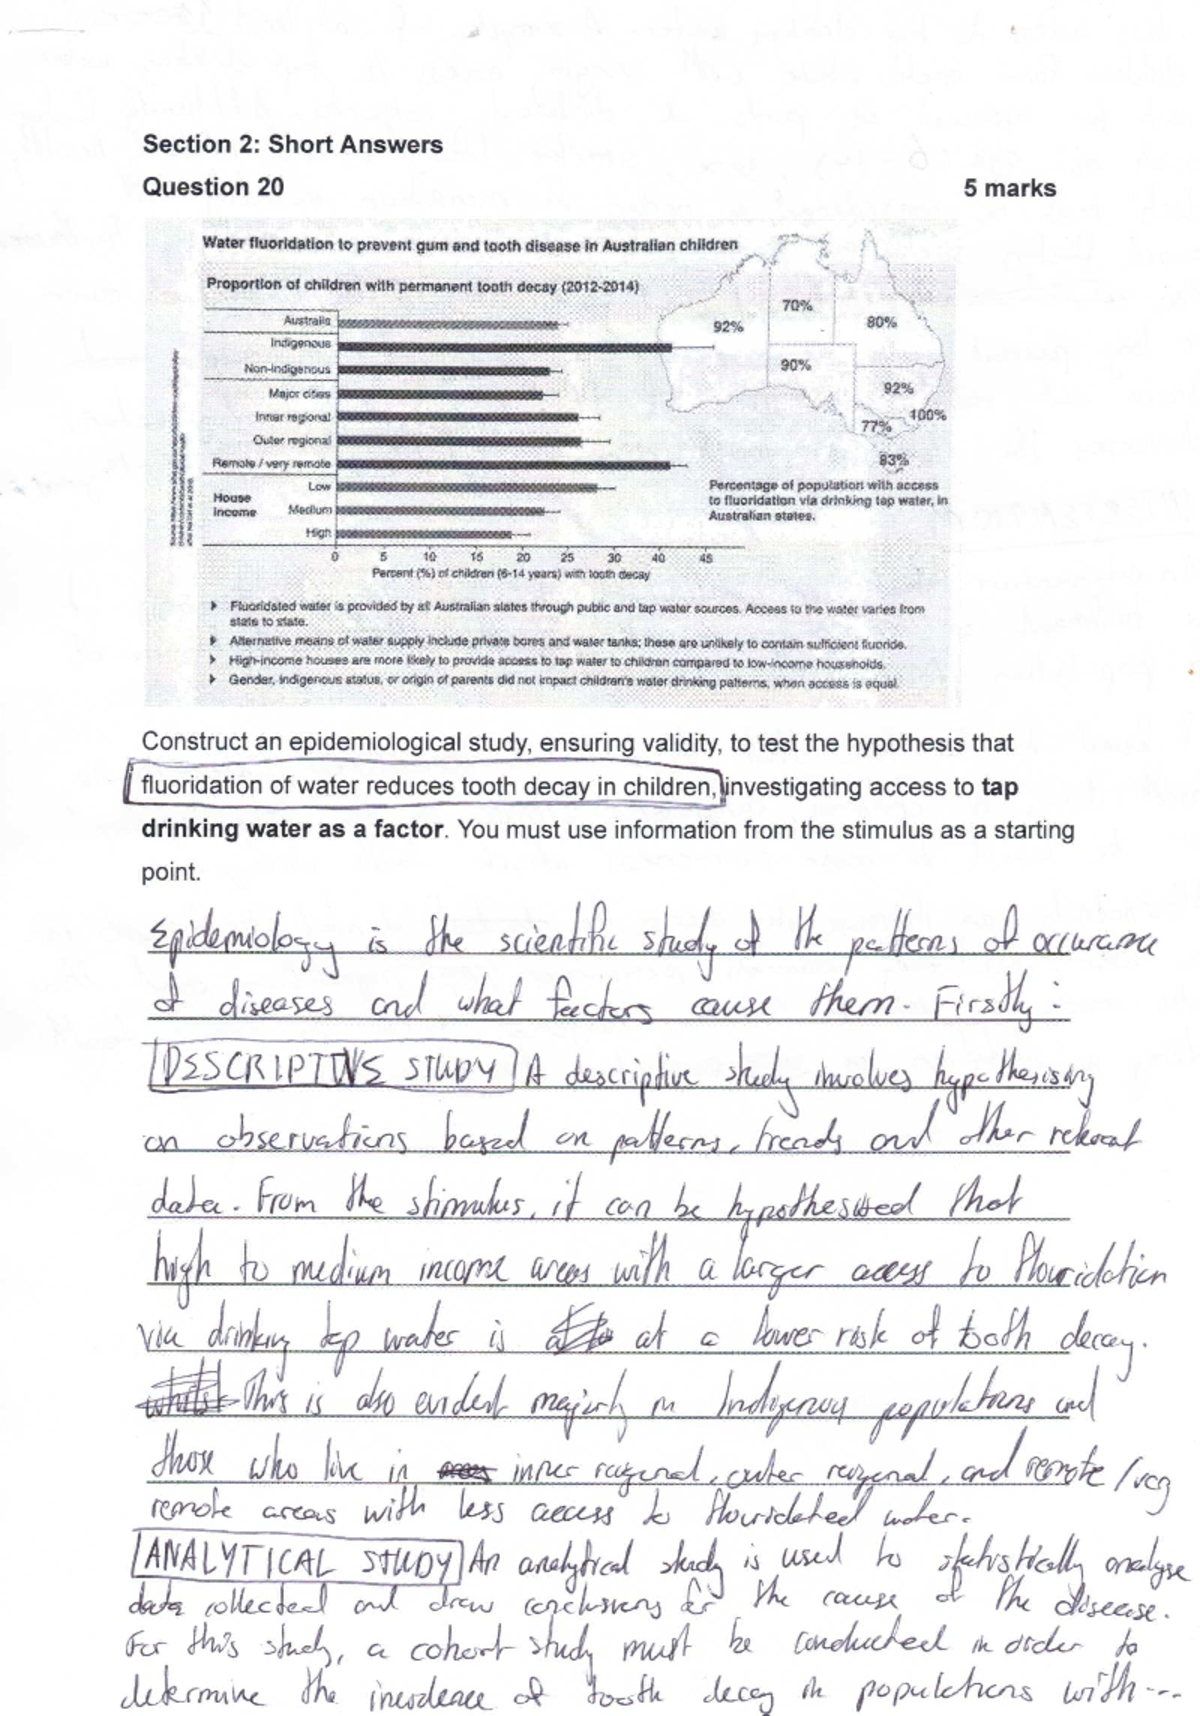 Section 2: Short Answers
Question 20 5 marks
Water fluoridation to prevent gum and tooth disease in Australian children
Proportion of children with permanent tooth decay (2012-2014)
Australia
Indigenous
Non-Indigenous
Major cities
Inner regional
Outer regional
Remote / very remote
House Income
Low
Medium
High
0 5 10 15 20 25 30 40 45
Percent (%) of children (6-14 years) with tooth decay
92%
70%
80%
90%
92%
100%
77%
83%
Percentage of population with access
to fluoridation via drinking tap water, in
Australian states.
Fluoridated water is provided by all Australian states through public and tap water sources. Access to the water varies from
state to state.
Alternative means of water supply include private bores and water tanks; these are unlikely to contain sufficient fluoride.
High-income houses are more likely to provide access to tap water to children compared to low-income households.
Gender, indigenous status, or origin of parents did not impact children's water drinking patterns, when access is equal.
Construct an epidemiological study, ensuring validity, to test the hypothesis that
fluoridation of water reduces tooth decay in children, investigating access to tap
drinking water as a factor. You must use information from the stimulus as a starting
point.
Epidemiology is the scientific study of the patterns of occurance
of diseases and what factors cause them. Firstly:
DESCRIPTIVE STUDY A descriptive study involves hypothesising
on observations based on patterns, trends and other relevant
data. From the stimulus, it can be hypothesised that
high to medium income areas with a larger access to flouridation
via drinking tap water is at a lower risk of tooth decay.
This is also evident majorly in Indigenous populations and
those who live in inner regional, outer regional, and remote / very
remote areas with less access to flouridated water.
ANALYTICAL STUDY An analytical study is used to statistically analyse
data collected and draw conclusions for the cause of the disease.
For this study, a cohort study must be conducted in order to
determine the incidence of tooth decay in populations with...